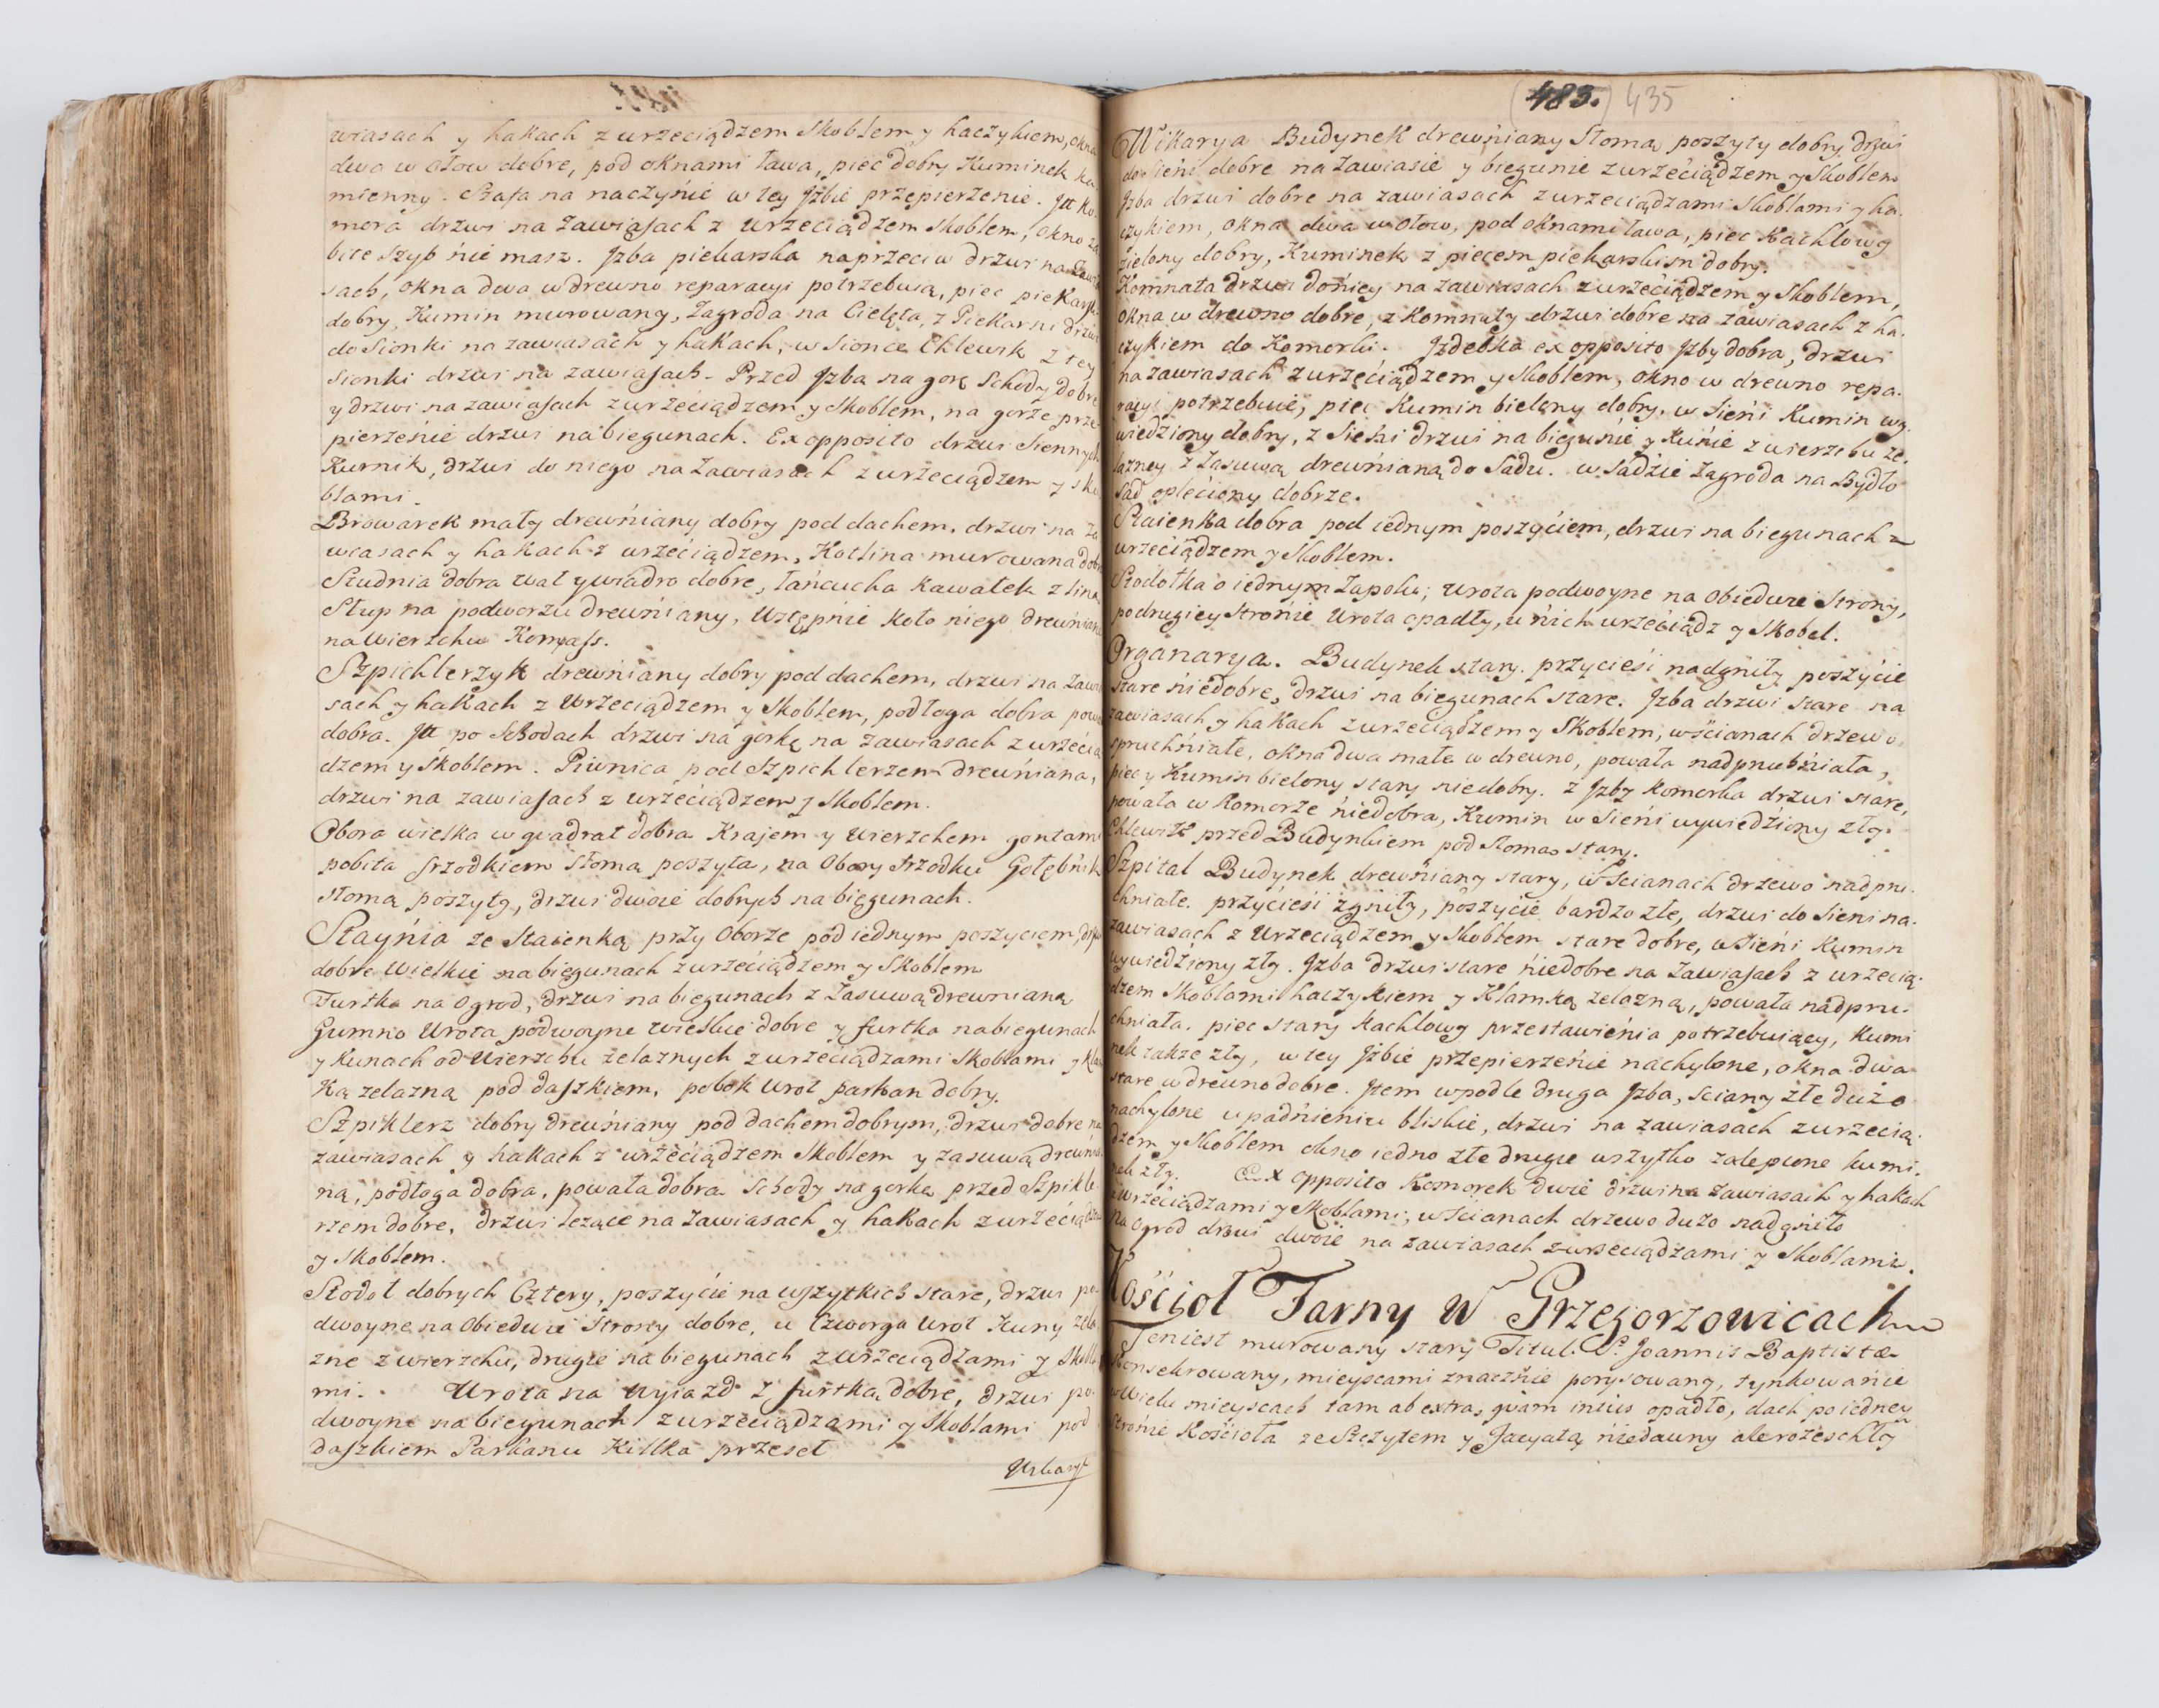 wiasach y hakach z urzeciądzem Skoblem y haczykiem, okna
dwa w ołow dobre, pod oknami ława, piec dobry Kuminek ka-
mienny. Szafa na naczynie w tey Jzbie przepierzenie. Jtt Ko-
mora drzwi na zawiasach z urzeciądzem Skoblem, okno za
bite szyb nie masz. Jzba piekarska naprzeciw drzwi na zawia
sach, okna dwa w drewno reparacyi potrzebuią, piec piekarski
dobry, Kumin murowany, Zagroda na Cielęta, z Piekarni drzwi
do Sionki na zawiasach y hakach, w Sionce Chlewik z tey
Sionki drzwi na zawiasach. Przed Jzbą na gorę Schody dobre
y drzwi na zawiasach z urzeciądzem y Skoblem, na gorze prze
pierzenie drzwi na biegunach. Ex opposito drzwi Siennych
Kurnik, drzwi do niego na zawiasach z urzeciądzem y sko
blami.
Browarek mały drewniany dobry pod dachem, drzwi na za
wiasach y hakach z urzeciądzem, Kotlina murowana dobra
Studnia dobra wał y wiadro dobre, łańcucha kawałek z liną
Słup na podworzu drewniany, Wstępnie koło niego drewniane
na wierzchu Kompass.
Szpichlerzyk drewniany dobry pod dachem, drzwi na zawia
sach y hakach z Urzeciądzem y Skoblem, podłoga dobra powa
dobra. Jtt po Schodach drzwi na gorkę na zawiasach z urzecią
dzem y Skoblem. Piwnica pod Szpichlerzem drewniana,
drzwi na zawiasach z urzeciądzem y Skoblem.
Obora wielka w quadrat dobra Krajem y wierzchem gontami
pobita srzodkiem słomą poszyta, na Obory srzodku Gołębnik
słomą poszyty, drzwi dwoie dobrych na biegunach.
Staynia ze Staienką przy Oborze pod iednym poszyciem,
dobre Wielkie na biegunach z urzeciądzem y Skoblem
Furtka na Ogrod, drzwi na biegunach z zasuwą drewnianą
Gumno Wrota podwoyne wielkie dobre y furtka na biegunach
y Kunach od wierzchu zelaznych z urzeciądzami Skoblami y kla
ką zelazną pod daszkiem, pobok Wrot parkan dobry.
Szpiklerz dobry drewniany pod dachem dobrym, drzwi dobre na
zawiasach y hakach z urzeciądzem Skoblem y zasuwą drewnia
ną, podłoga dobra, powała dobra Schody na gorkę przed Szpikle
rzem dobre, drzwi leżące na zawiasach y hakach z urzeciądzem
y Skoblem.
Stodoł dobrych Cztery, poszycie na wszytkich stare, drzwi po-
dwoyne na Obiedwie Strony dobre, u Czworga Wrot Kuny zela
zne z wierzchu, drugie na biegunach z urzeciądzami y Skobla
mi. Wrota na Wyiazd z furtką dobre, drzwi po-
dwoyne na biegunach z urzeciądzami y Skoblami pod
daszkiem Parkanu Killka przeseł
Wikarya
(483.) 435
Wikarya Budynek drewniany Słomą poszyty dobry drzwi
do Sieni dobre na zawiasie y biegunie z urzeciądzem y Skoblem
Jzba drzwi dobre na zawiasach z urzeciądzami Skoblami y ha-
czykiem, okna dwa w ołow, pod oknami ława, piec Kachlowy
zielony dobry, Kuminek z piecem piekarskim dobry.
Komnata drzwi do niey na zawiasach z urzeciądzem y Skoblem,
okna w drewno dobre, z Komnaty drzwi dobre na zawiasach z ha-
czykiem do Komorki. Jzdebka ex opposito Jzby dobra, drzwi
na zawiasach z urzeciądzem y Skoblem, okno w drewno repa-
racyi potrzebuie, piec Kumin bielony dobry, w Sieni Kumin wy-
wiedziony dobry, z Sieni drzwi na biegunie y Kunie z wierzchu że-
lazney z zasuwą drewnianą do Sadu. w Sadzie Zagroda na Bydło
Sad opleciony dobrze.
Staienka dobra pod iednym poszyciem, drzwi na biegunach z
urzeciądzem y Skoblem.
Stodołka o iednym zapolu; wrota podwoyne na Obiedwie Strony,
po drugiey stronie Wrota opadły, u nich urzeciądz y Skobel.
Organarya. Budynek stary. przyciesi nadgniły poszycie
stare niedobre, drzwi na biegunach stare. Jzba drzwi stare na
zawiasach y hakach z urzeciądzem y Skoblem, w ścianach drzewo
spruchniałe, okna dwa małe w drewno, powała nadpruchniała,
piec y Kumin bielony stary niedobry. z Jzby Komorka drzwi stare,
powała w Komorze niedobra, Kumin w Sieni wywiedziony zły.
Chlewik przed Budynkiem pod słomą stary.
Szpital Budynek drewniany stary, w ścianach drzewo nadpru-
chniałe. przyciesi zgniły, poszycie bardzo złe, drzwi do Sieni na
zawiasach z Urzeciądzem y Skoblem stare dobre, w Sieni Kumin
wywiedziony zły. Jzba drzwi stare niedobre na zawiasach z urzecią-
dzem Skoblami haczykiem y Klamką zelazną, powała nadpru-
chniała, piec stary kachlowy przestawienia potrzebuiący, Kumi
nek także zły, w tey Jzbie przepierzenie nachylone, okna dwa
stare w drewno dobre. Jtem wpodle druga Jzba, ściany złe dużo
nachylone upadnieniu bliskie, drzwi na zawiasach z urzecią-
dzem y Skoblem okno iedno złe drugie wszytko zalepione kumi-
nek zły. Ex opposito Komorek dwie drzwi na zawiasach y hakach
z Urzeciądzami y Skoblami, w ścianach drzewo dużo nadgniło
na Ogrod drzwi dwoie na zawiasach z urzeciądzami y Skoblami.
Kościoł Farny w Grzegorzowicach
Ten iest murowany stary Titul. S. Joannis Baptistæ
konsekrowany, mieyscami znacznie porysowany, tynkowanie
w Wielu mieyscach tam ab extra, quam intus opadło, dach po iedney
stronie Kościoła ze Szczytem y Facyatą niedawny ale rozeschły